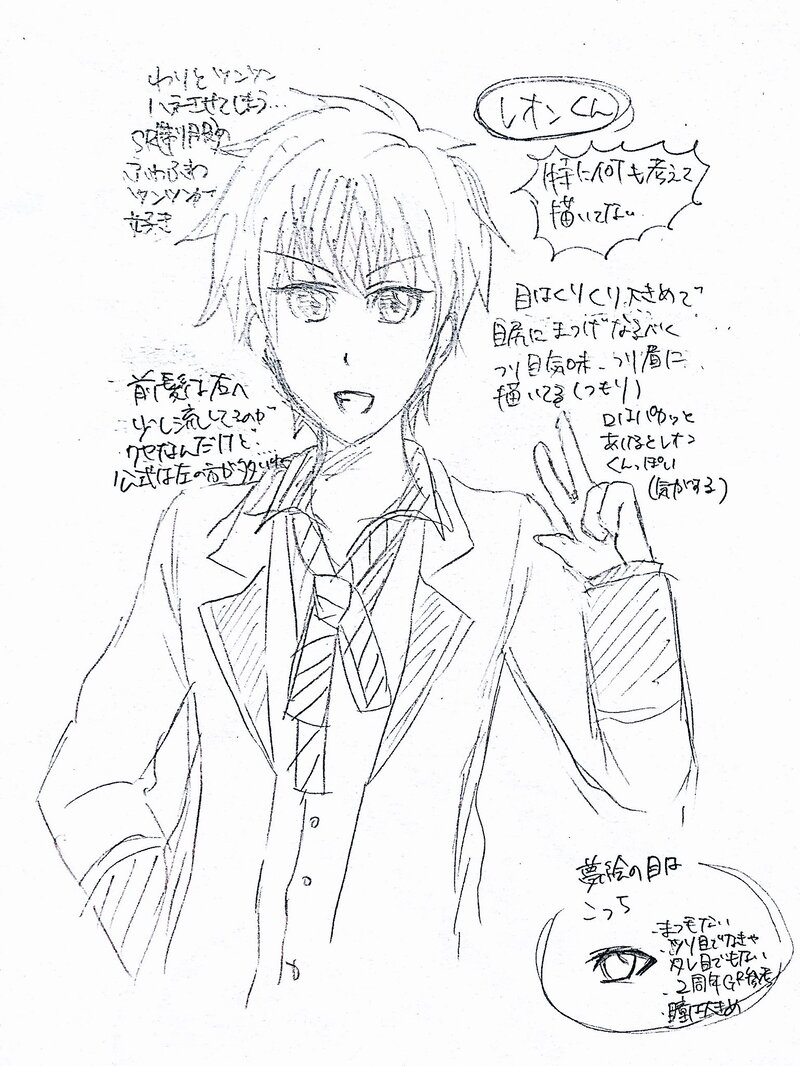 わりとツンツン
ハネさせてしまう…
ふわふわ
ツンツンが
好き
レオンくん
特に何も考えて
描いてない
目はくりくり大きめで
目尻にまつげなるべく…
つり目気味、つり眉に
描いてる(つもり)
口はパカッと
あけるとレオン
くんっぽい
(気がする)
前髪は右へ
少し流してるのが
クセなんだけど…
公式は左の方が多いね
夢絵の目は
こっち
・まつ毛ない
・ツリ目でなきゃ
タレ目でもない
・2周年GR参考
・瞳は大きめ